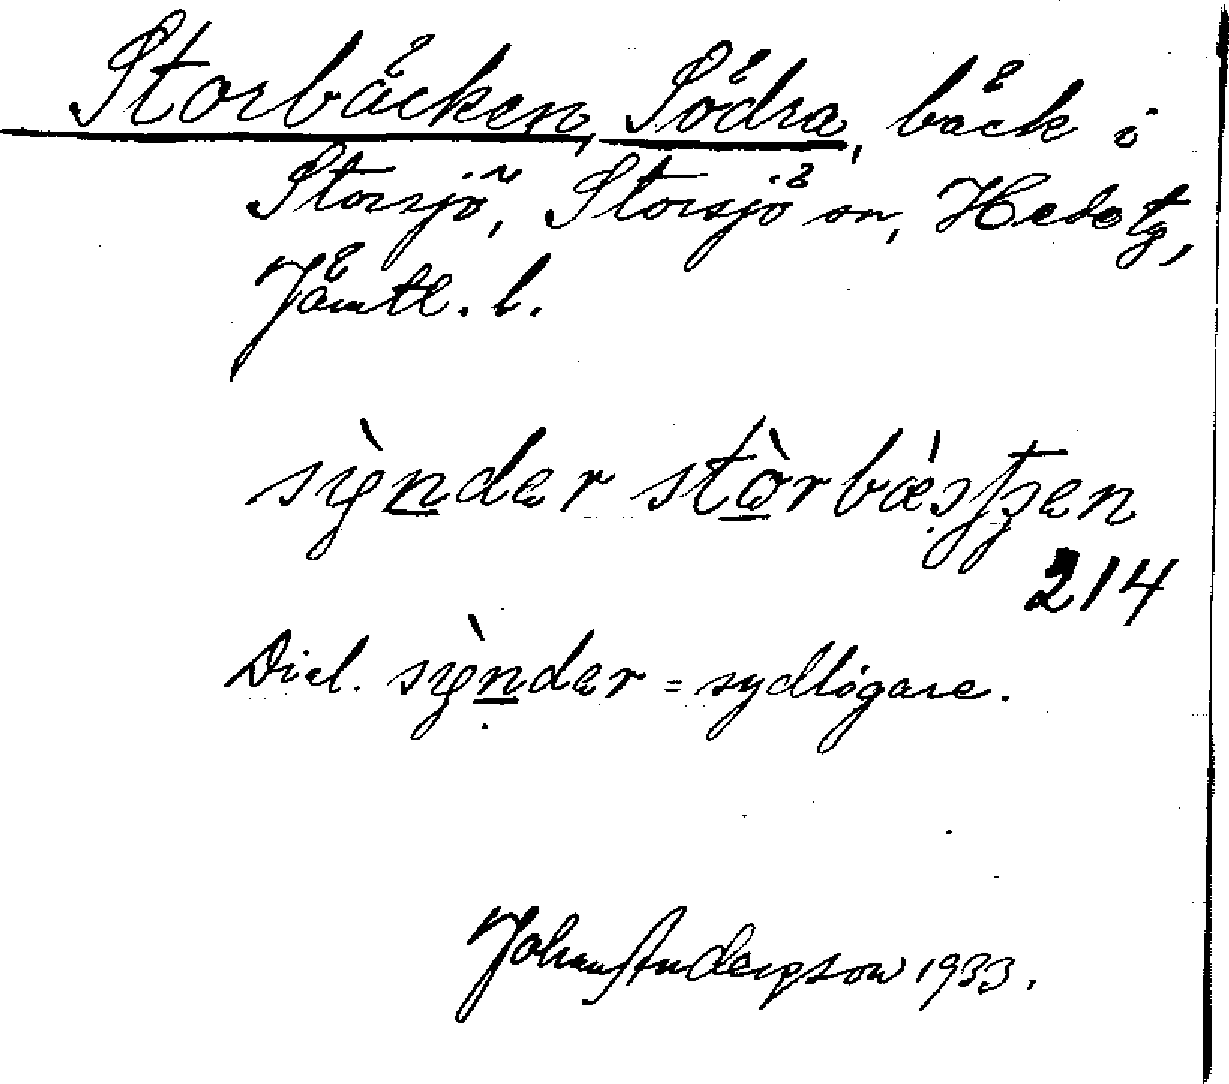 Storbäcken, Södra, bäck i
Storsjö, Storsjö sn, Hede tg,
Jämtl. l.
sỳnder stòrbæ̀ʂʈʂen
214
Dial. sỳnder = sydligare.
Johan Anderpson 1933.